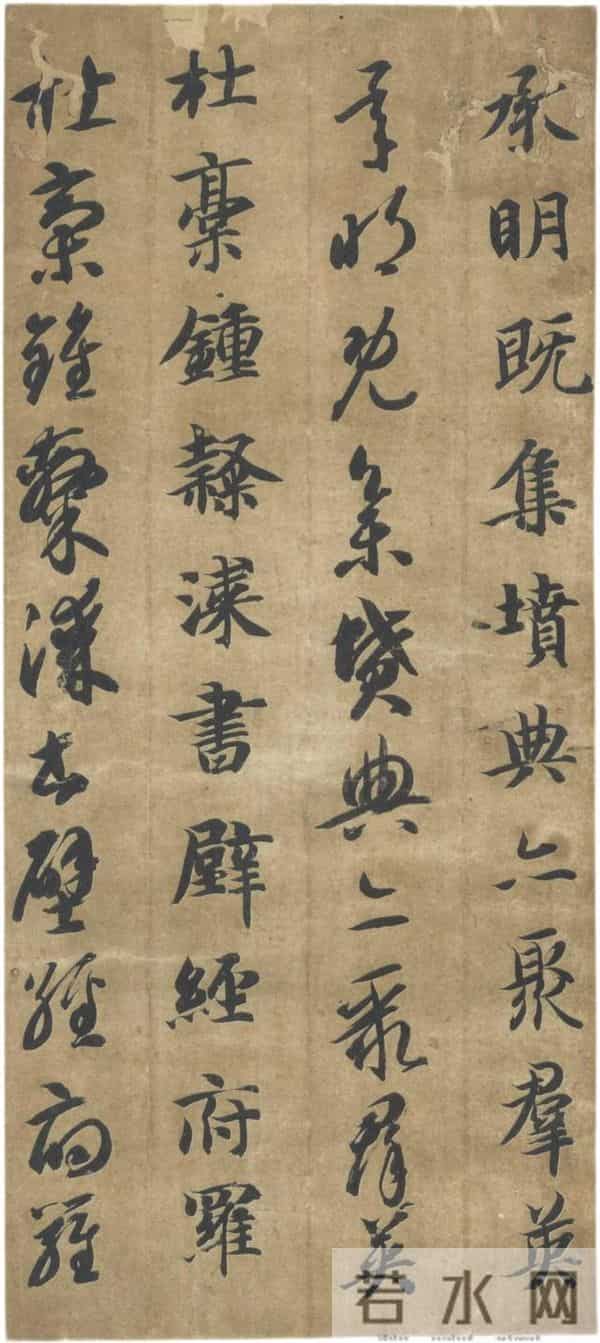 承明既集墳典亦聚羣英
承明既集墳典亦聚羣英
杜稾鍾隸漆書壁經府羅
杜稾鍾隸漆書壁經府羅
若水网